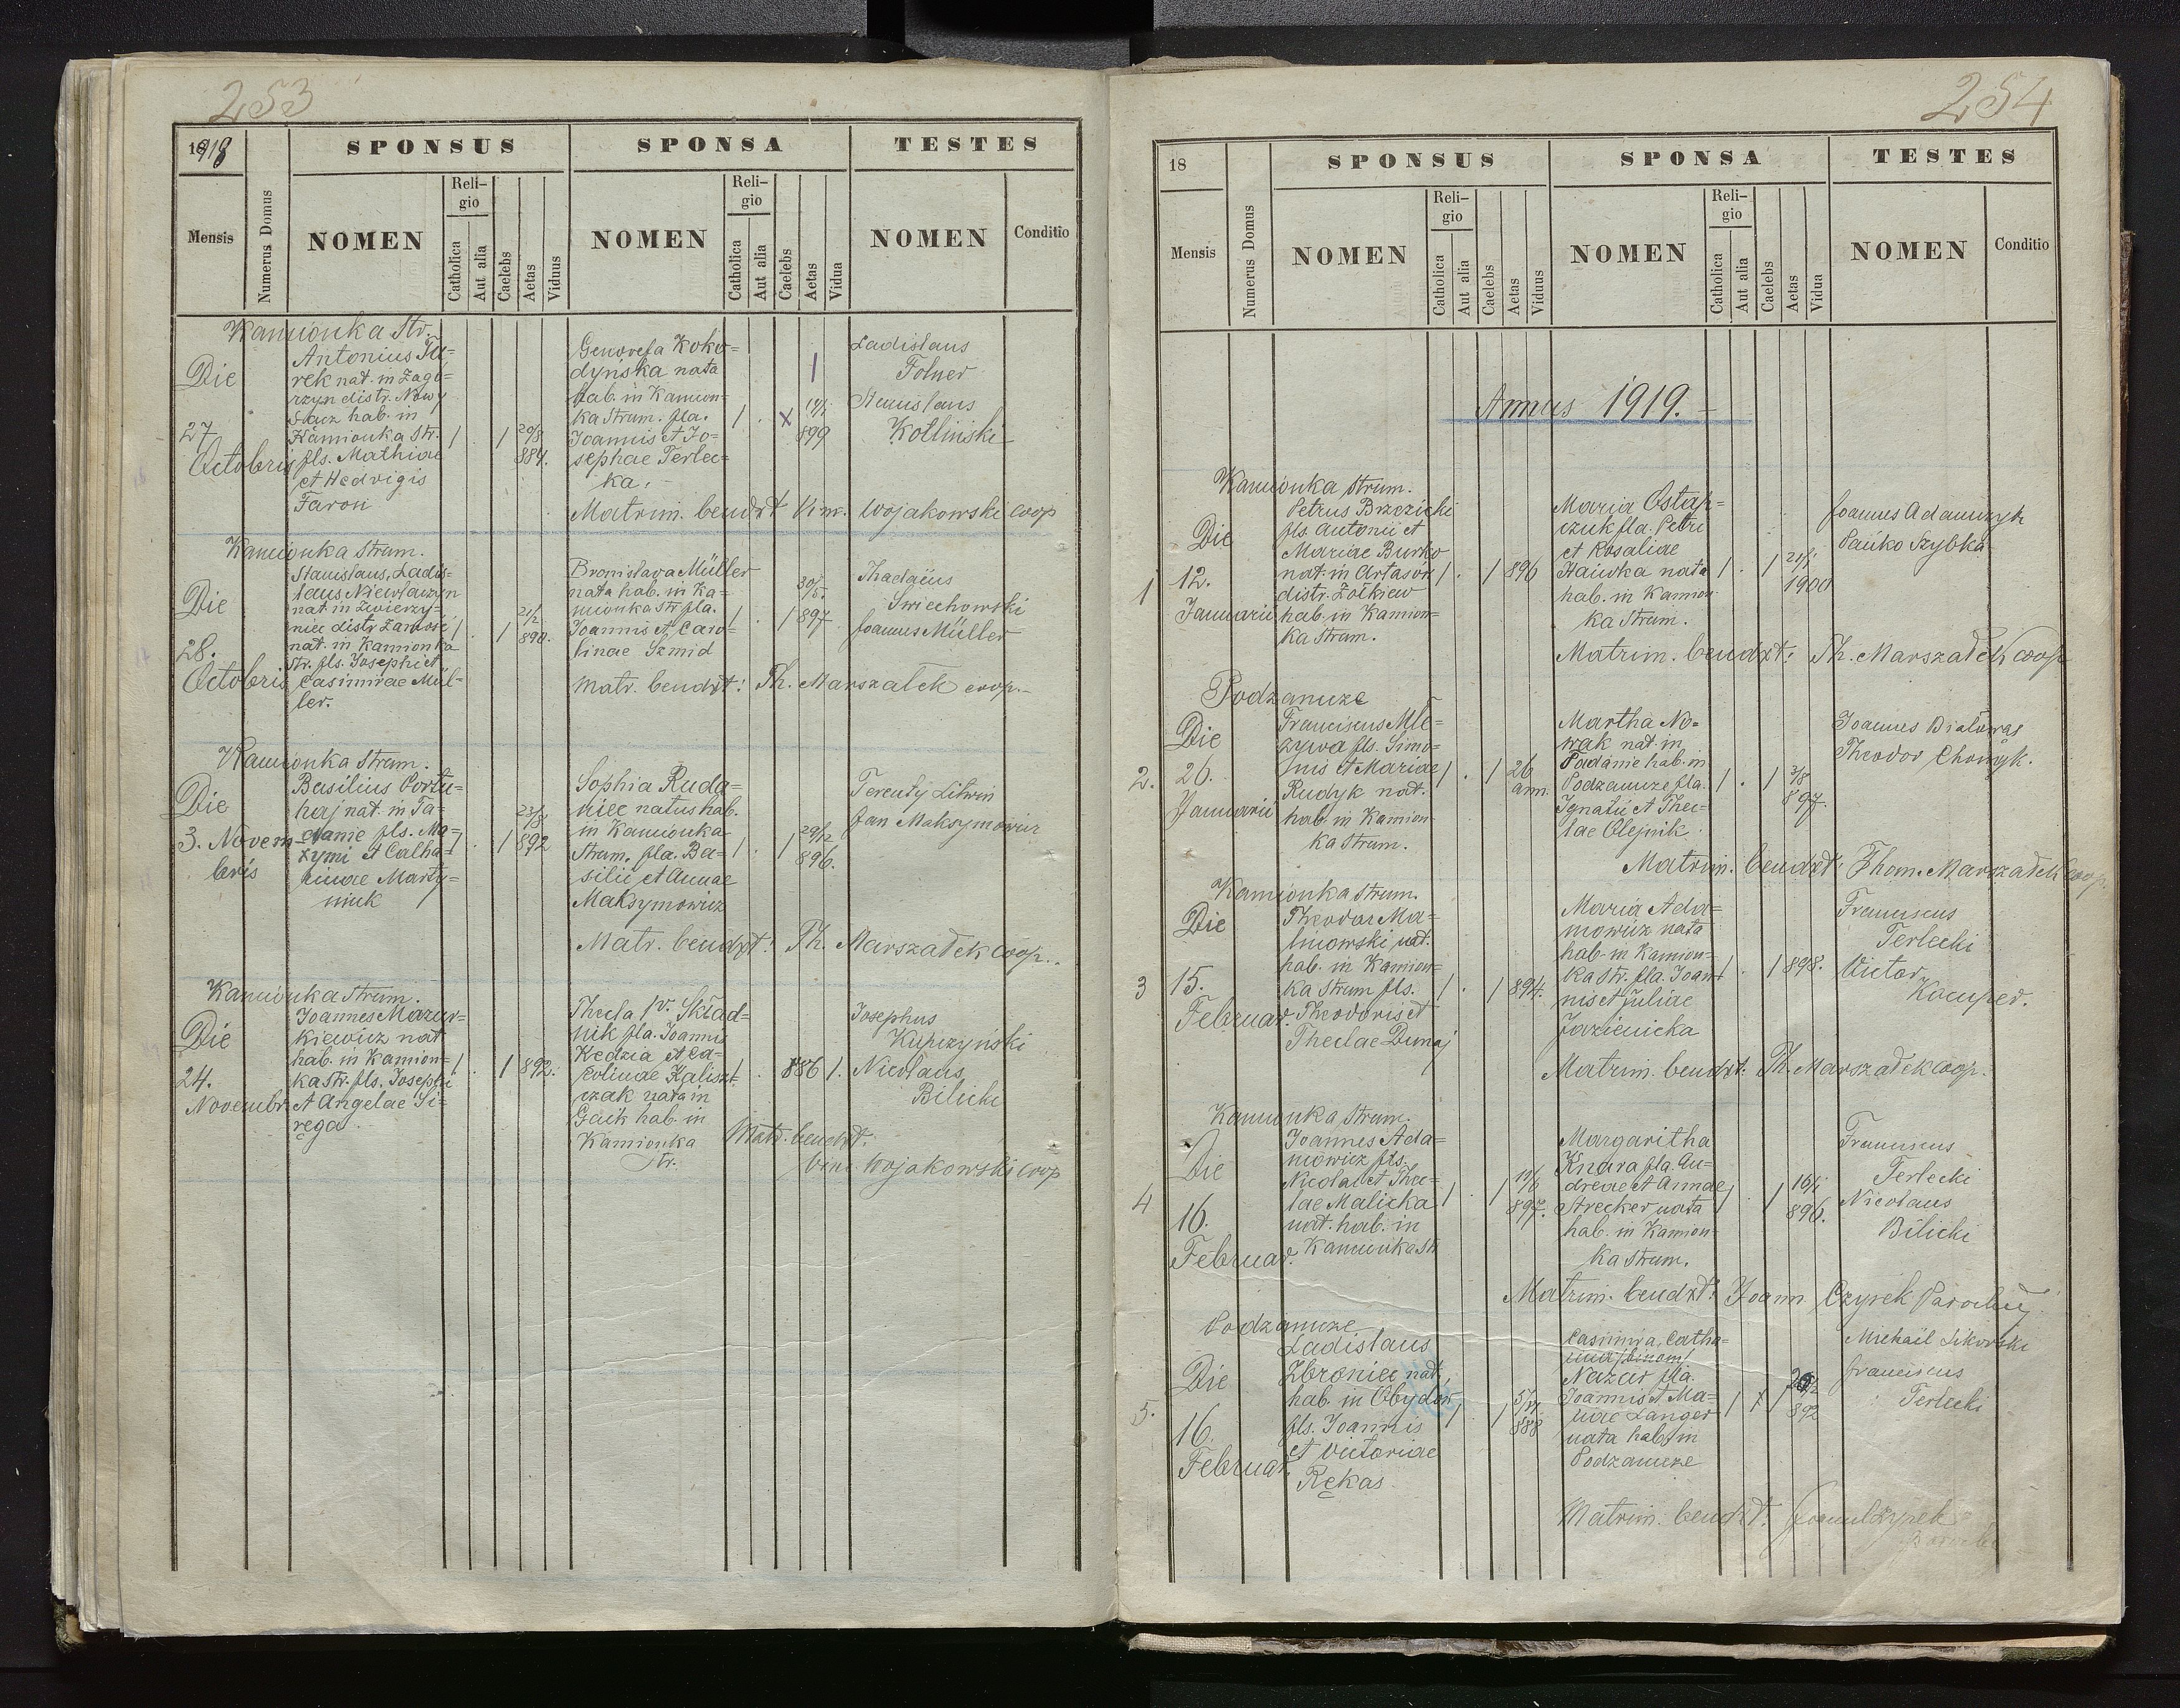 253
1918
SPONSUS
SPONSA
TESTES
Mensis
Numerus Domus
NOMEN
Religio
Catholica
Aut alia
Caelebs
Aetas
Viduus
NOMEN
Religio
Catholica
Aut alia
Caelebs
Aetas
Vidua
NOMEN
Conditio
Kamionka Str.
Die
27
Octobris
Antonius Tu=
rek nat. in Zago=
rzyn distr. Nowy
Sącz hab. in
Kamionka Str.
fls. Mathiae
et Hedvigis
Faron
1 . 1 20/8 884.
Genovefa Koko=
dyńska nata
hab. in Kamion=
ka Strum. fla.
Joannis et Jo=
sephae Terlec=
ka.
1 . x 899
Ladislaus
Folner
Stanislaus
Kotliński
Matrim. benedxt Vinc. Wojakowski coop
Kamionka Strum.
Die
28.
Octobris
Stanislaus, Ladis=
laus Niewławzyn
nat in Zwierzy=
niec distr Zamość
nat. in Kamionka
Str. fls. Josephi et
Casimirae Mül=
ler.
1 . 1 21/2 890.
Bronislava Müller
nata hab. in Ka=
mionka Str fla.
Joannis et Caro=
linae Szmid
1 . 1 30/5. 897
Thadäus
Swiechowski
Joannes Müller
Matr. benedxt: Th. Marszałek coop.
Kamionka Strum.
Die
3. Novem=
bris
Basilius Portu=
haj nat. in Ta=
danie fls. Ma=
xymi et Catha=
rinae Marty=
niuk
1 . 1 23/8 892
Sophia Ruda=
niec natus hab.
in Kamionka
Strum. fla. Ba=
silii et Annae
Maksymowicz
1 . 1 29/12 896.
Terenty Litwin
Jan Maksymowicz
Matr. benedxt: Th. Marszałek coop.
Kamionka Strum.
Die
24.
Novembr.
Joannes Mazur=
kiewicz nat
hab. in Kamion=
ka Str. fls. Josephi
et Angelae Si=
ręga
1 . 1 892.
Thecla 1º v. Skład=
nik fla. Joannis
Kędzia et Ca=
rolinae Kaliszt
czak nata in
Gaik hab. in
Kamionka
Str.
1 . 886 1.
Josephus
Kupczyński
Nicolaus
Bilicki
Matr. benedxt:
Vinc. Wojakowski coop
254
18
SPONSUS
SPONSA
TESTES
Mensis
Numerus Domus
NOMEN
Religio
Catholica
Aut alia
Caelebs
Aetas
Viduus
NOMEN
Religio
Catholica
Aut alia
Caelebs
Aetas
Vidua
NOMEN
Conditio
Annus 1919.
Kamionka Strum.
1
Die
12.
Januarii
Petrus Brzezicki
fls. Antonii et
Mariae Burko
nat. in Artasów
distr. Żółkiew
hab. in Kamion=
ka Strum.
1 . 1 896
Maria Ostap=
czuk fla. Petri
et Rosaliae
Haiwka nata
hab. in Kamion
ka Strum.
1 . 1 21/1 1900
Joannes Adamczyk
Pańko Szybka
Matrim. benedxt: Th. Marszałek coop
Podzamcze
2.
Die
26.
Januarii
Franciscus Mle=
zywa fls. Simo=
nis et Mariae
Rudyk nat.
hab. in Kamion
ka Strum.
1 . 1 26 ann.
Martha No=
wak nat. in
Tadanie hab. in
Podzamcze fla.
Ignatii et Thec=
lae Olejnik.
1 . 1 3/8 897.
Joannes Białowąs
Theodor Chomyk.
Matrim. benedxt: Thom. Marszałek coop.
Kamionka Strum.
3
Die
15.
Februar.
Theodor Ma=
linowski nat.
hab. in Kamion=
ka Strum fls.
Theodoris et
Theclae Dunaj
1 . 1 894.
Maria Ada=
mowicz nata
hab. in Kamion=
ka Str. fla. Joan=
nis et Juliae
Jazienicka
1 . 1 898.
Franciscus
Terlecki
Victor
Kacuper.
Matrim. benedxt: Th. Marszałek coop.
Kamionka Strum.
4
Die
16.
Februar.
Joannes Ada=
mowicz fls.
Nicolai et Thec=
lae Malicka
nat. hab. in
Kamionka Str
1 . 1 11/6 897.
Margaritha
Knara fla. An=
dreae et Annae
Strecker nata
hab. in Kamion
ka Strum.
1 . 1 16/1 896.
Franciscus
Terlecki
Nicolaus
Bilicki
Matrim. benedxt: Joann Czyrek Parochus.
Podzamcze
5.
Die
16.
Februar.
Ladislaus
Zbroniec nat.,
hab. in Obydów
fls. Joannis
et Victoriae
Rękas
1 . 1 888
Casimira, Catha=
rina /binom/
Nazar fla.
Joannis et Ma=
riae Langer
nata hab. in
Podzamcze
1 x 1 892
Michaël Sikorski
Franciscus
Terlecki
Matrim. benedxt: Joann Czyrek
Parochus